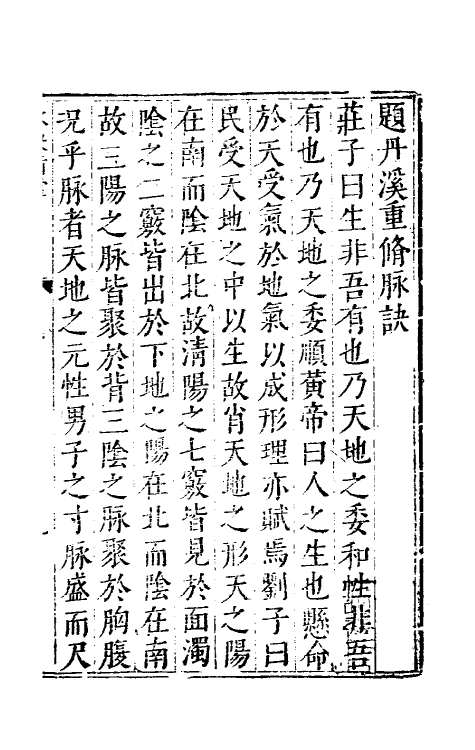 題丹溪重脩脉訣
莊子曰生非吾有也乃天地之委和性非吾
有也乃天地之委順黃帝曰人之生也懸命
於天受氣於地氣以成形理亦賦焉劉子曰
民受天地之中以生故肖天地之形天之陽
在南而陰在北故清陽之七竅皆見於面濁
陰之二竅皆出於下地之陽在北而陰在南
故三陽之脉皆聚於背三陰之脉聚於胸腹
况乎脉者天地之元性男子之寸脉盛而尺